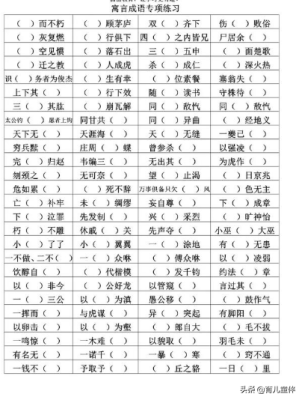 寓言成语专项练习
（ ）而不朽 （ ）顾茅庐 双（ ）齐下 伤（ ）败俗
（ ）灰复燃 （ ）行俱下 四（ ）之内皆兄 尸居余（ ）
（ ）空见惯 （ ）落石出 三（ ）五申 （ ）面楚歌
（ ）迁之教 （ ）人成虎 杀（ ）成仁 （ ）深火热
识（ ）务者为俊杰 （ ）生有幸 （ ）位素餐 塞翁失（ ）
上下其（ ） （ ）行下效 随（ ）读书 守株待（ ）
三（ ）其旨 （ ）崩瓦解 同（ ）敌忾 同（ ）敌忾
太公钓（ ）愿者上钩 同甘共（ ） 同（ ）异曲 （ ）经地义
天下无（ ） 天涯海（ ） 天（ ）无缝 一夔已（ ）
穷兵黩（ ） 庄周（ ）蝶 曾参杀（ ） 以强凌（ ）
完（ ）归赵 韦编三（ ） 无出其（ ） 为虎作（ ）
刎颈之（ ） 无可奈（ ） 望（ ）止渴 （ ）日京兆
危如累（ ） （ ）死不辞 万事俱备只欠（ ）风 （ ）色无主
亡（ ）补牢 未（ ）绸缪 妄自尊（ ） 下（ ）成章
下（ ）泣罪 先发制（ ） 兴（ ）采烈 （ ）旷神怡
朽（ ）不雕 休戚（ ）关 先声夺（ ） 小巫（ ）大巫
小（ ）了了 小（ ）翼翼 一（ ）涂地 有（ ）无患
一不做、二不（ ） 一（ ）众咻 （ ）傅众咻 以（ ）凌弱
饮醇自（ ） （ ）代楷模 （ ）发千钧 约法（ ）章
以（ ）非今 （ ）公好龙 以管窥（ ） 言过其（ ）
（ ）三公 以（ ）为滇 愚公移（ ） （ ）鼓作气
一挥而（ ） 与虎谋（ ） 异（ ）突起 有脚阳（ ）
以卵击（ ） 以（ ）为壑 （ ）郎自大 （ ）毛不拔
一鸣惊（ ） 一木难（ ） 以貌取（ ） 羽毛未（ ）
有名无（ ） 一诺千（ ） 一暴（ ）寒 （ ）窍不通
一钱不（ ） 予取予（ ） （ ）丘之貉 一日（ ）里
头条@育儿宣伴